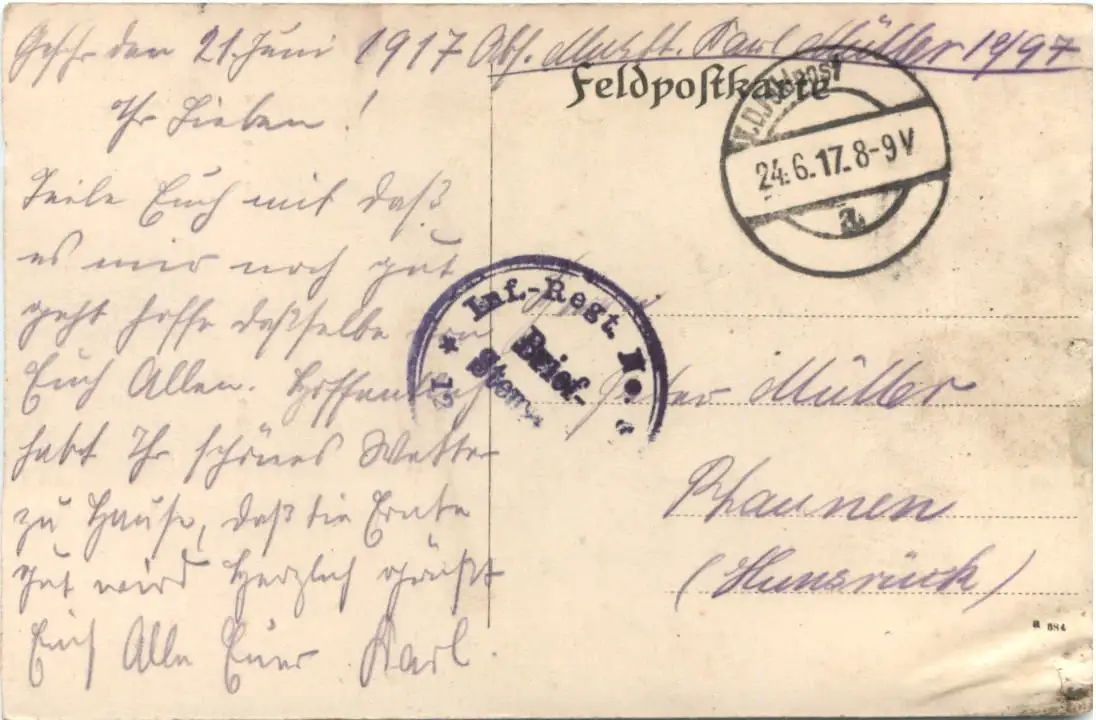 Geschr. den 21. Juni 1917 Abs. Muskt. Karl Müller 12/97
Feldpostkarte
Ihr Lieben!
Teile Euch mit daß
es mir noch gut
geht hoffe dasselbe von
Euch Allen. Hoffentlich
habt Ihr schönes Wetter
zu Hause, daß die Ernte
gut wird Herzlich grüßt
Euch Alle Euer Karl.
K.D. Feldpost
24.6.17. 8-9 V
a.
* Inf.-Regt. No.
Brief-
Stem
12
Peter Müller
Rhaunen
(Hunsrück)
a 684